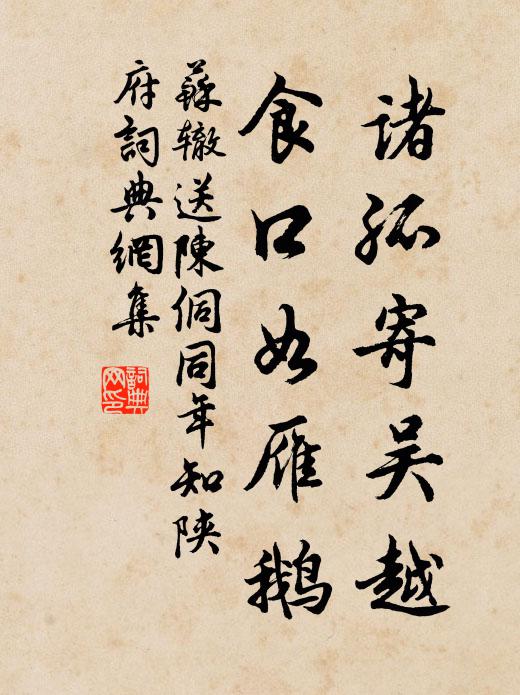 诸孤寄吴越
食口如雁鹅
蘇辙送陳侗同年知陕
府詞典網集
詞典
网印